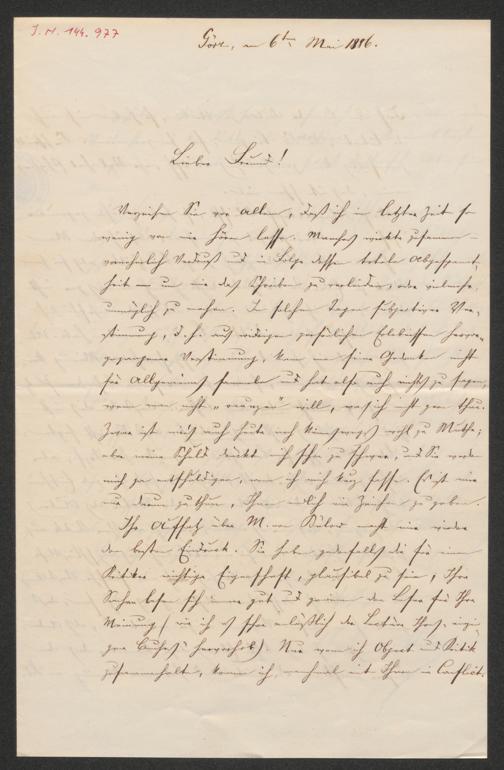 I.N. 144.977
Görz, am 6ten Mai 1886.
Lieber Freund!
Verzeihen Sie vor Allem, daß ich in letzter Zeit so
wenig von mir hören lasse. Manches wirkte zusammen –
Verdruß und in Folge dessen totale Abgespannt-
heit – um mir das Schreiben zu verleiden, oder vielmehr
unmöglich zu machen. In solchen Tagen subjectiver Ver-
stimmung, d. h. aus widrigen persönlichen Erlebnissen hervor-
gegangener Verstimmung, kann man seine Gedanken nicht
für Allgemeines sammeln und hat also auch nichts zu sagen,
wenn man nicht „raunzen“ will, was ich nicht gern thue.
Zwar ist mir auch heute noch keineswegs wohl zu Muthe;
aber meine Schuld drückt mich schon zu schwer, und Sie werden
mich ja entschuldigen, wenn ich mich kurz fasse. Es ist mir
nur darum zu thun, Ihnen endlich ein Zeichen zu geben.
Ihr Aufsatz über M. von Bülow macht mir wieder
den besten Eindruck. Sie haben jedenfalls die für einen
Kritiker wichtige Eigenschaft, plausibel zu sein; Ihre
Sachen lesen sich immer gut und gewinnen den Leser für Ihre
Meinung (wie ich es schon anläßlich der Lectüre Ihres
Buches hervorhob). Nur wenn ich Object und Kritik
zusammenhalte, komme ich manchmal mit Ihnen in Conflict.